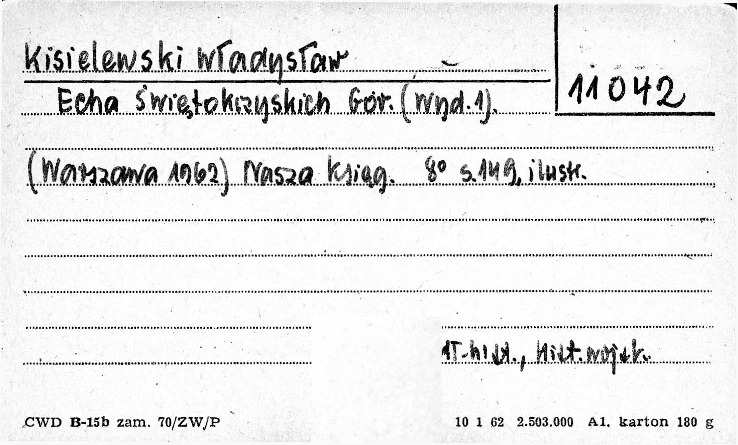 Kisielewski Władysław
11042
Echa Świętokrzyskich Gór. (Wyd. 1).
(Warszawa 1962) Nasza Księg. 8° s. 149, ilustr.
hist., Hist. wojsk.
CWD B-15b zam. 70/ZW/P
10 1 62 2.503.000 A1. karton 180 g